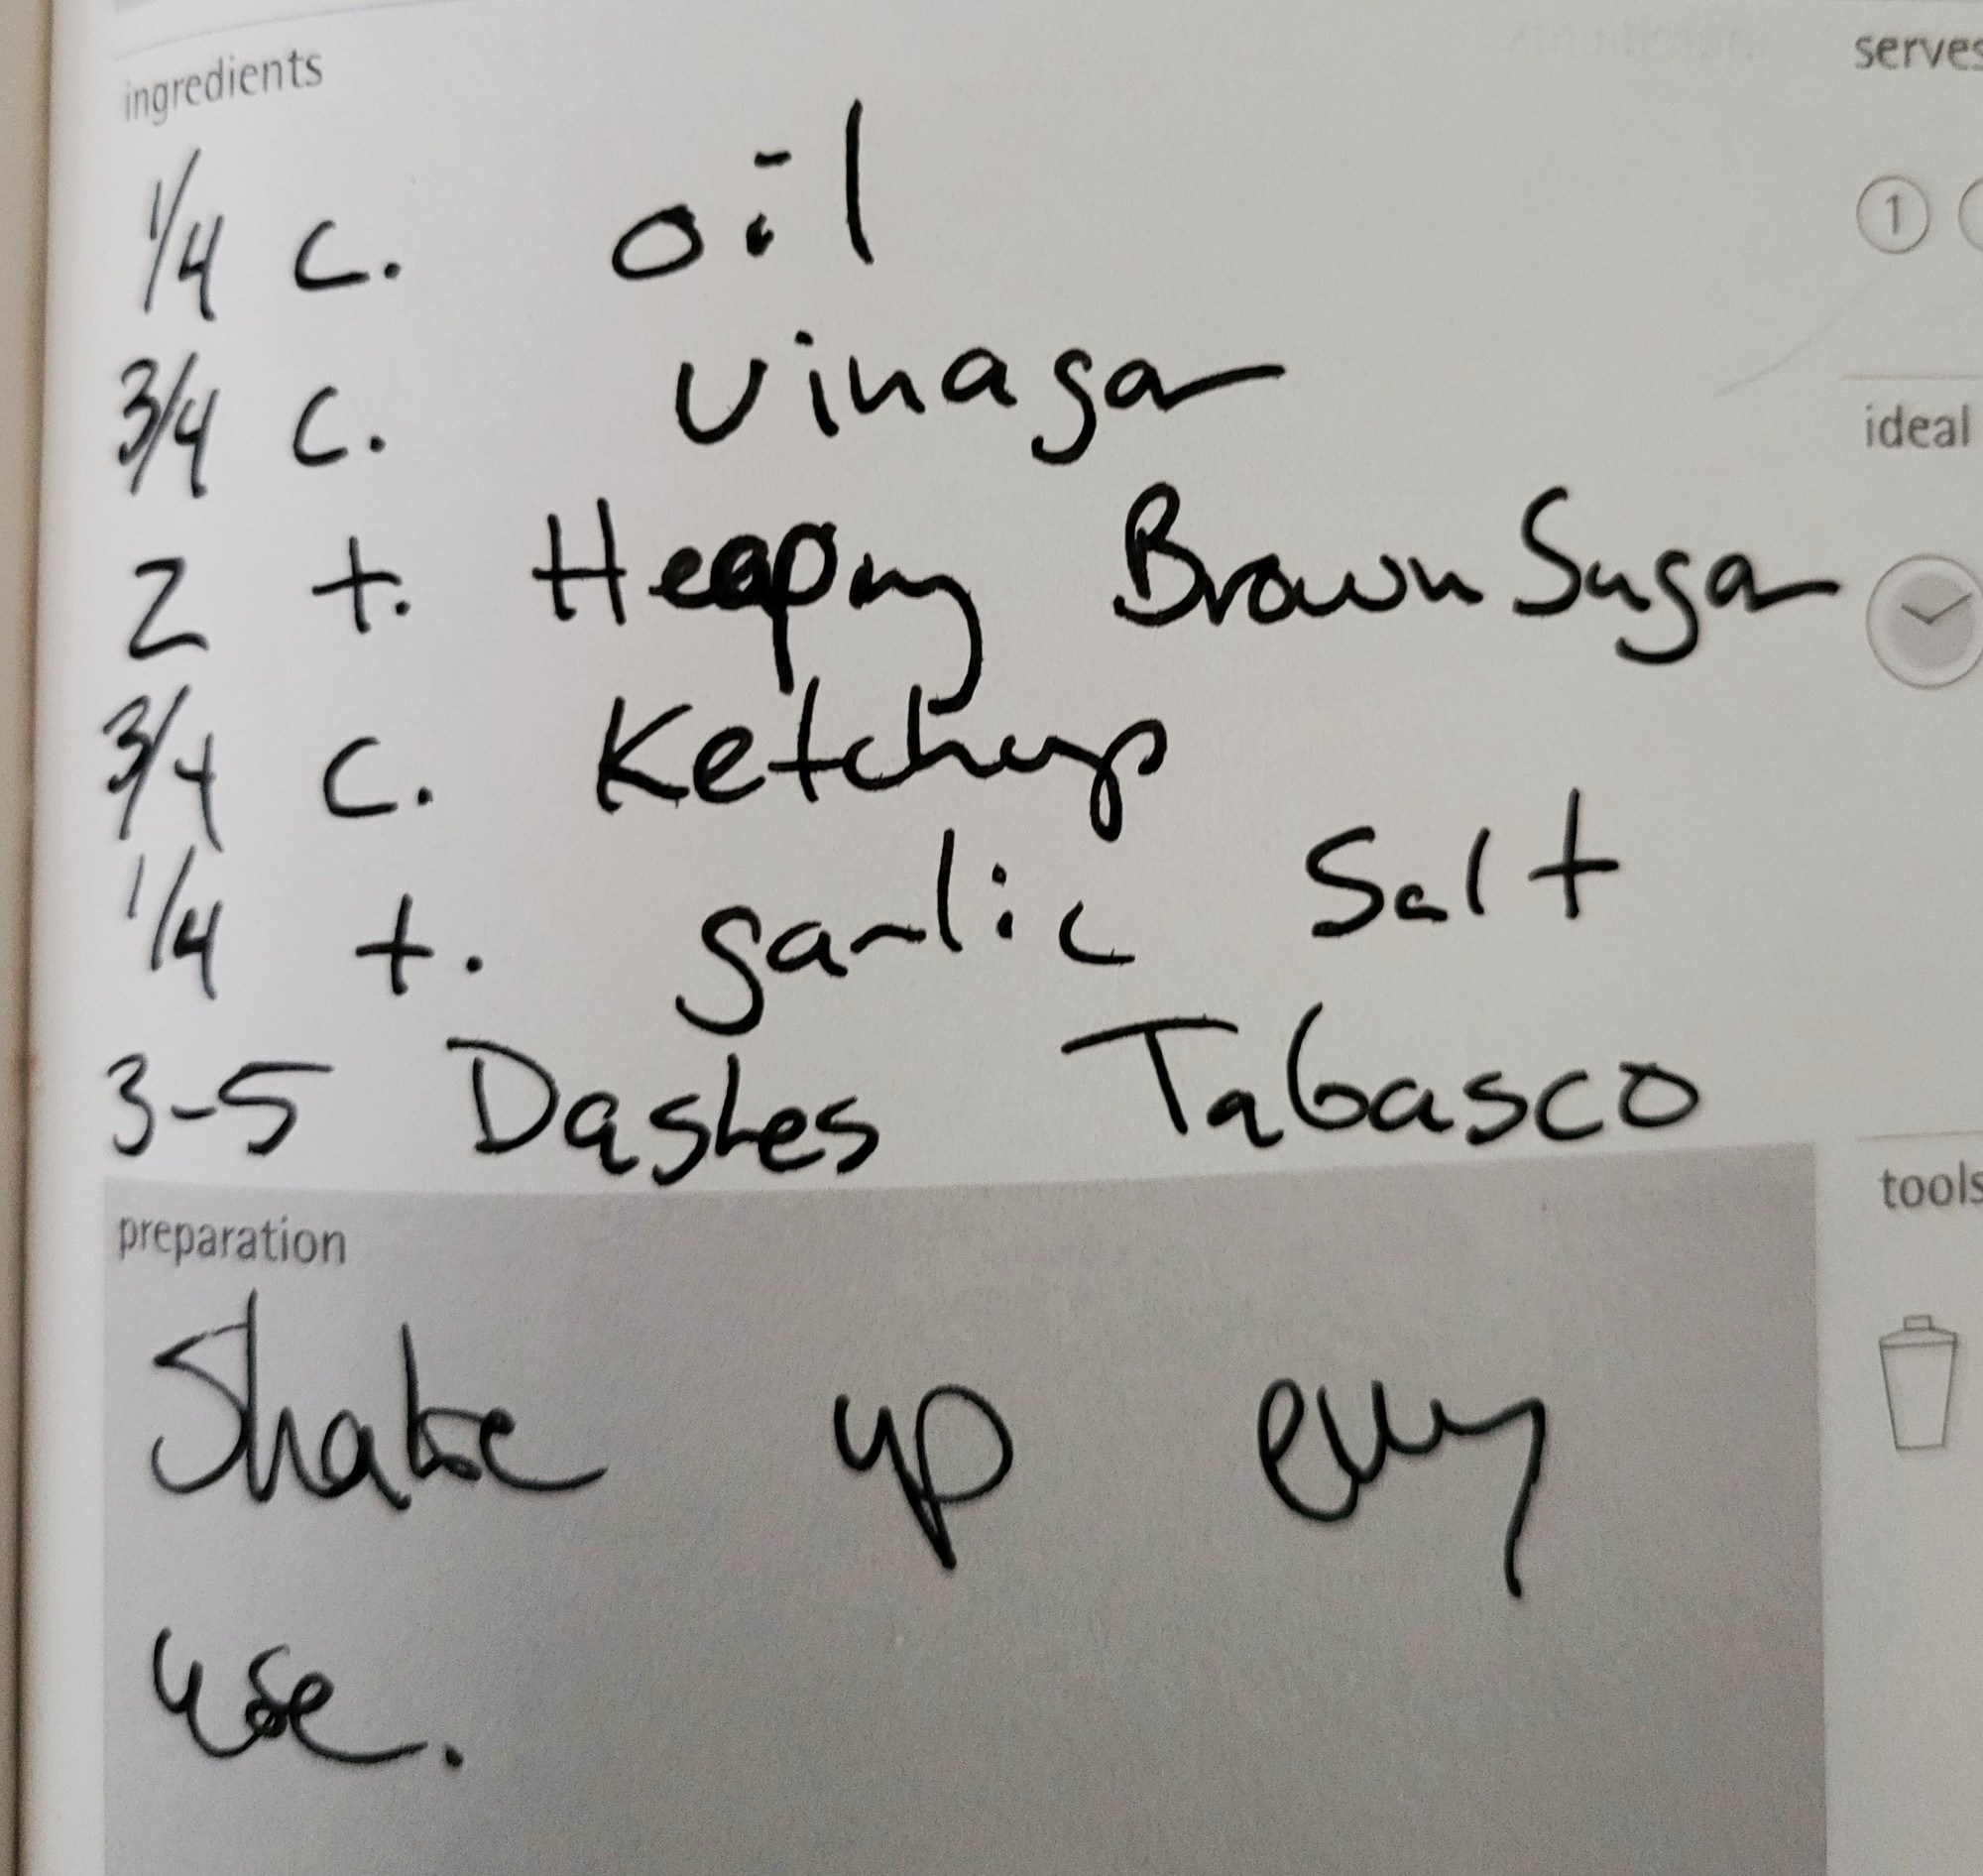 ingredients
1/4 c. oil
3/4 c. vinagar
2 t. Heaping Brown Sugar
3/4 c. Ketchup
1/4 t. garlic Salt
3-5 Dashes Tabasco
preparation
Shake up every
use.
serves
1
ideal
tools